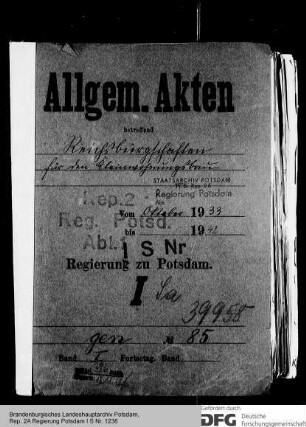 Allgem. Akten
betreffend
Reichsbürgschaften
für den Kleinwohnungsbau
STAATSARCHIV POTSDAM
Rep. 2
Regierung Potsdam
Reg. Potsd.
Vom Oktober 1933
bis 1942
Abt.
I S Nr
Regierung zu Potsdam.
I Sa
39955
gen № 85
Band I Fortsetzg. Band
Brandenburgisches Landeshauptarchiv Potsdam,
Rep. 2A Regierung Potsdam I S Nr. 1236
Gefördert durch
DFG Deutsche
Forschungsgemeinschaft